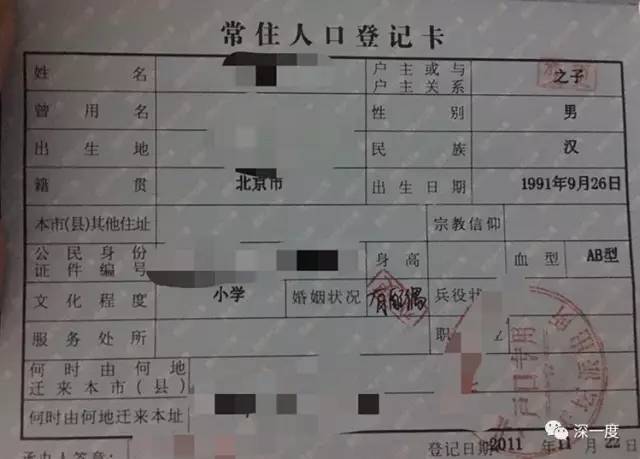 常住人口登记卡
姓名 户主或与户主关系 之子
曾用名 性别 男
出生地 民族 汉
籍贯 北京市 出生日期 1991年9月26日
本市(县)其他住址 宗教信仰
公民身份证件编号 身高 血型 AB型
文化程度 小学 婚姻状况 有配偶 兵役状
服务处所 职
何时由何地迁来本市(县)
何时由何地迁来本址
承办人签章: 登记日期 2011年11月22日
户口专用
派出所
深一度